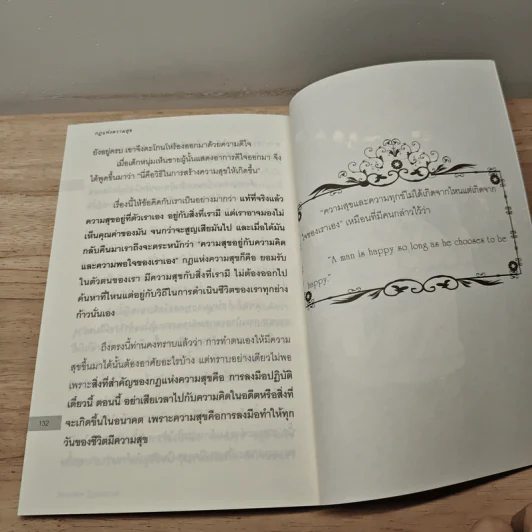 กฎแห่งความสุข
ยังอยู่ครบ เขาจึงตะโกนโห่ร้องออกมาด้วยความดีใจ
เมื่อเด็กหนุ่มเห็นชายผู้นั้นแสดงอาการดีใจออกมา จึง
ได้พูดขึ้นมาว่า "นี่คือวิธีในการสร้างความสุขให้เกิดขึ้น"
เรื่องนี้ให้ข้อคิดกับเราเป็นอย่างมากว่า แท้ที่จริงแล้ว
ความสุขอยู่ที่ตัวเราเอง อยู่กับสิ่งที่เรามี แต่เราอาจมองไม่
เห็นคุณค่าของมัน จนกว่าจะสูญเสียมันไป และเมื่อได้มัน
กลับคืนมาเราถึงจะตระหนักว่า "ความสุขอยู่กับความคิด
และความพอใจของเราเอง" กฎแห่งความสุขก็คือ ยอมรับ
ในตัวตนของเรา มีความสุขกับสิ่งที่เรามี ไม่ต้องออกไป
ค้นหาที่ไหนแต่อยู่กับวิถีในการดำเนินชีวิตของเราทุกย่าง
ก้าวนั่นเอง
ถึงตรงนี้ท่านคงทราบแล้วว่า การทำตนเองให้มีความ
สุขขึ้นมาได้นั้นต้องอาศัยอะไรบ้าง แต่ทราบอย่างเดียวไม่พอ
เพราะสิ่งที่สำคัญของกฎแห่งความสุขคือ การลงมือปฏิบัติ
เดี๋ยวนี้ ตอนนี้ อย่าเสียเวลาไปกับความคิดในอดีตหรือสิ่งที่
จะเกิดขึ้นในอนาคต เพราะความสุขคือการลงมือทำให้ทุก
วันของชีวิตมีความสุข
132
"ความสุขและความทุกข์ไม่ได้เกิดจากไหนแต่เกิดจาก
ใจของเราเอง" เหมือนที่มีคนกล่าวไว้ว่า
"A man is happy so long as he chooses to be
happy."